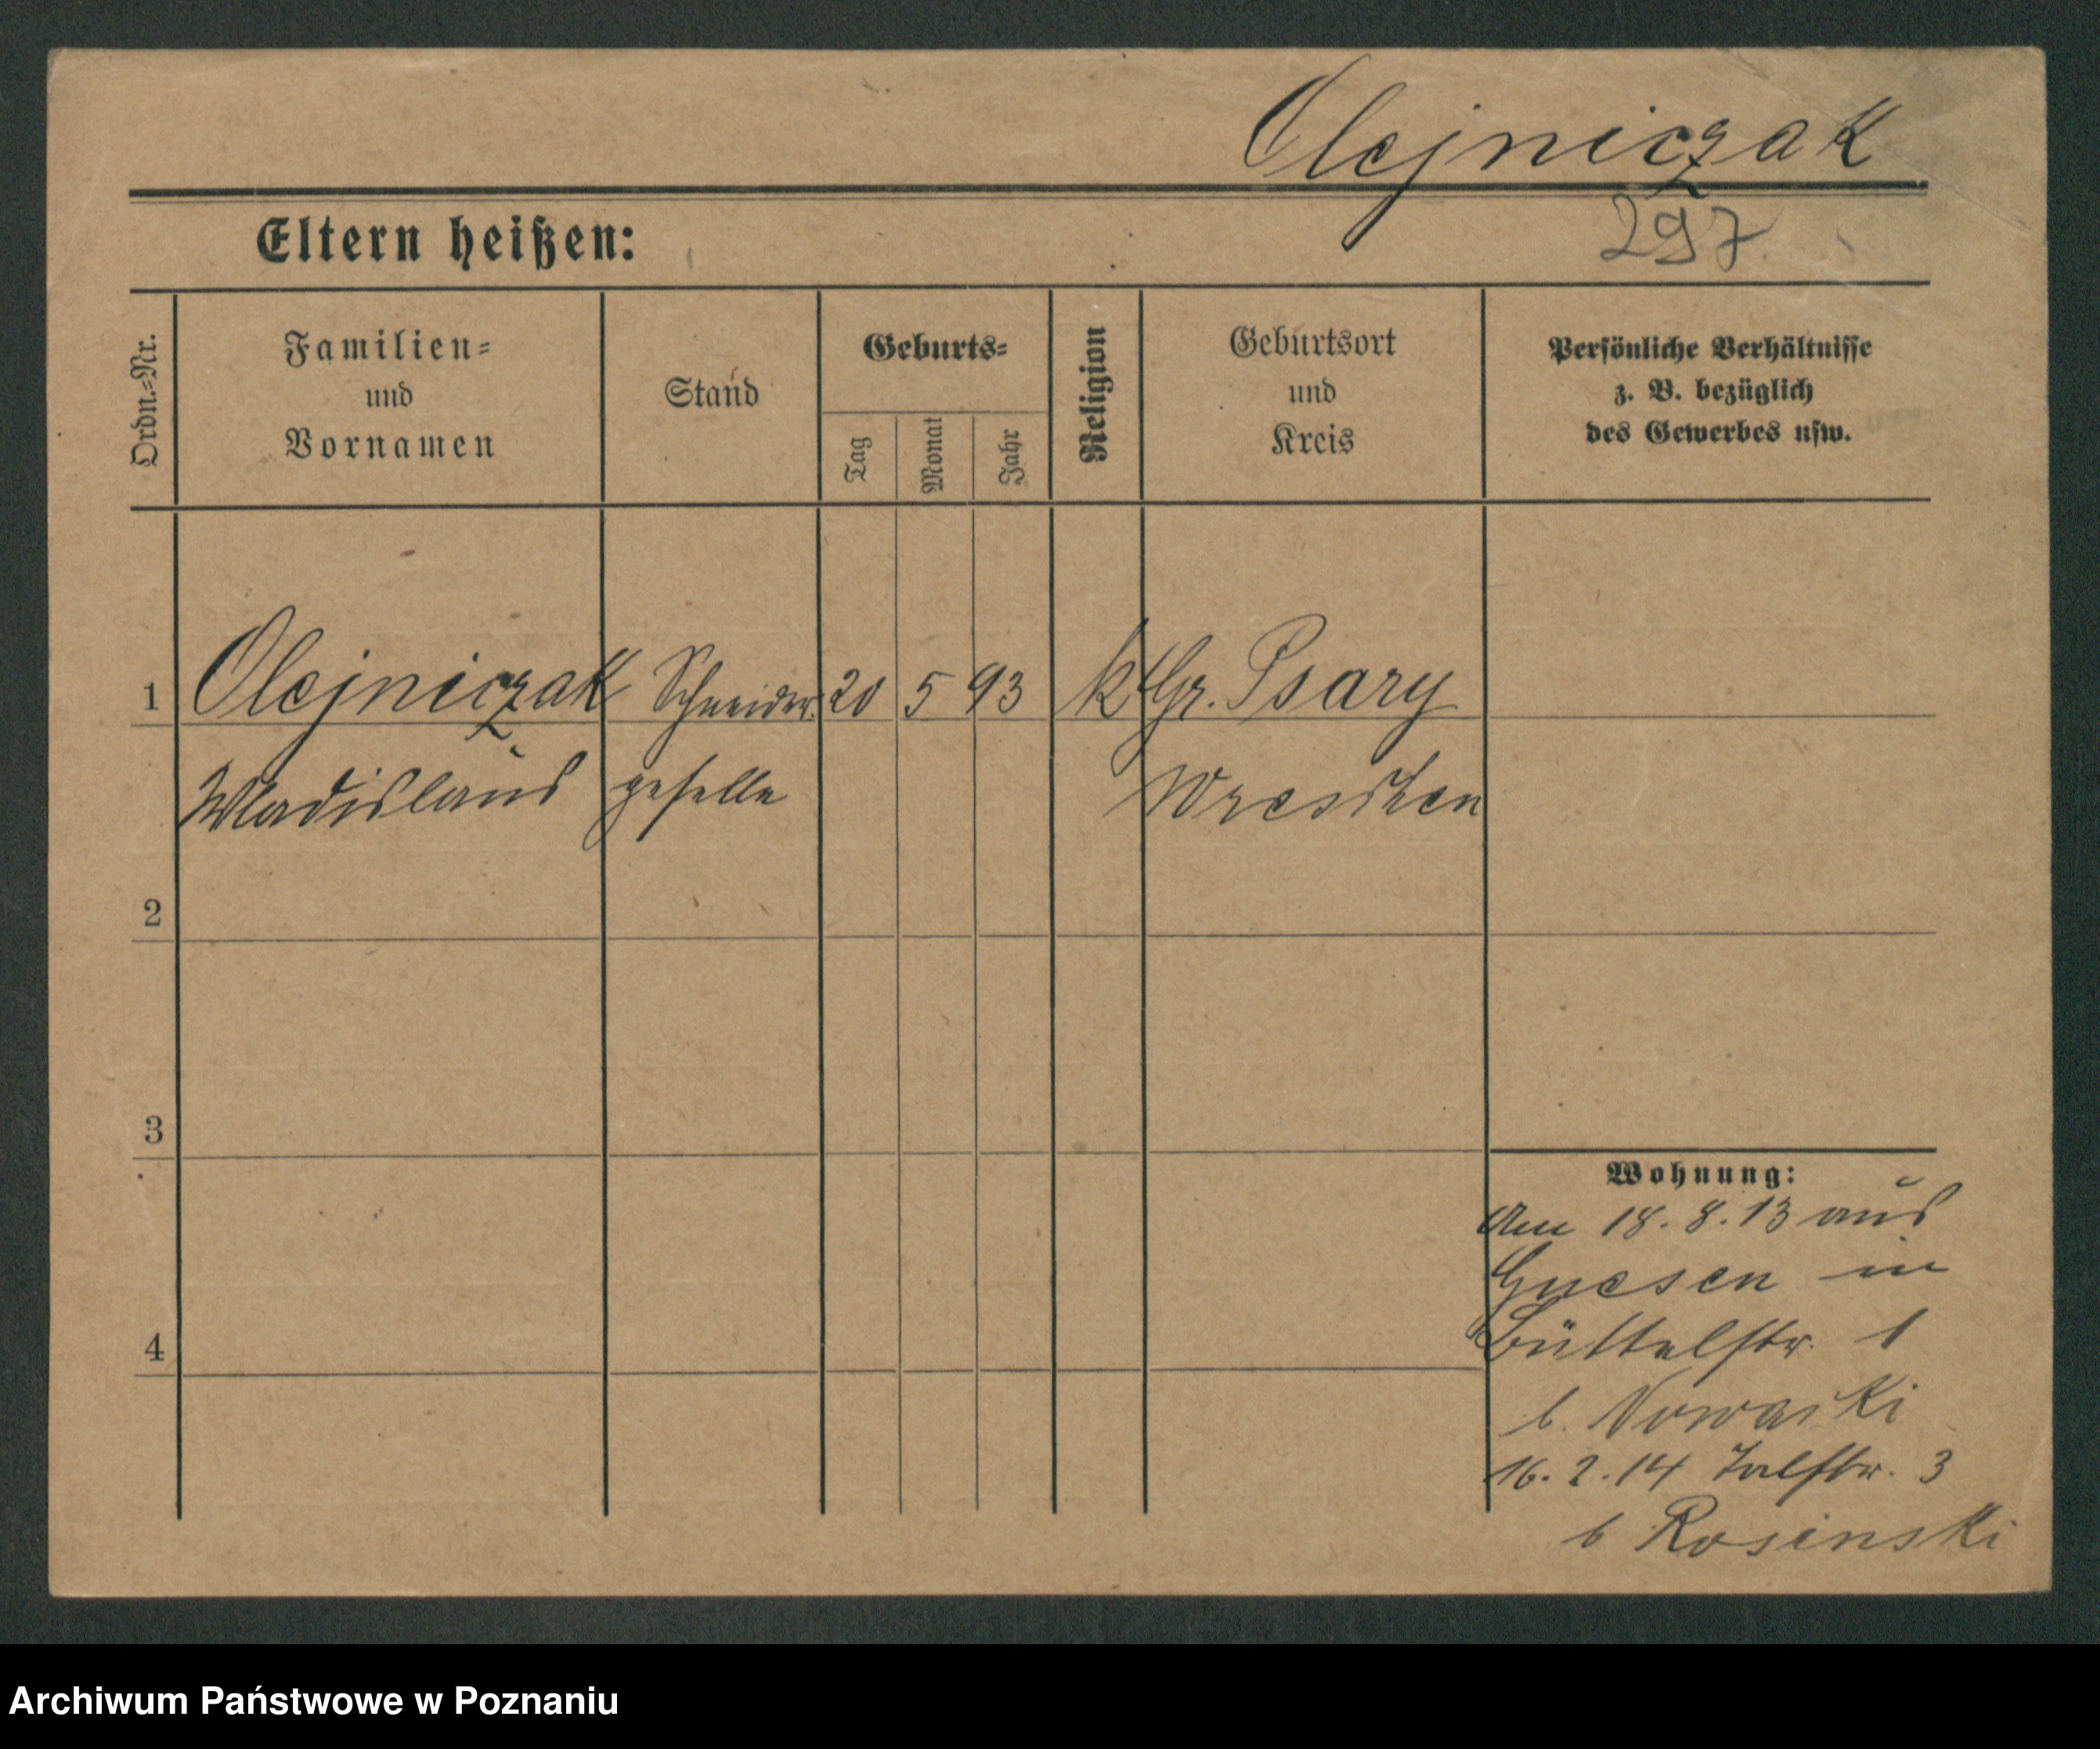 Olejniczak
297.
Eltern heißen:
Ordn.=Nr.
Familien=
und
Vornamen
Stand
Geburts=
Tag
Monat
Jahr
Religion
Geburtsort
und
Kreis
Persönliche Verhältnisse
z. B. bezüglich
des Gewerbes usw.
1 Olejniczak Schneider= 20 5 93 k Gr. Psary
Wladislaus geselle Wreschen
2
3
4
Wohnung:
Am 18. 8. 13 aus
Gnesen in
Büttelstr. 1
b. Nowaski
16. 2. 14 Talstr. 3
b Rosinski
Archiwum Państwowe w Poznaniu